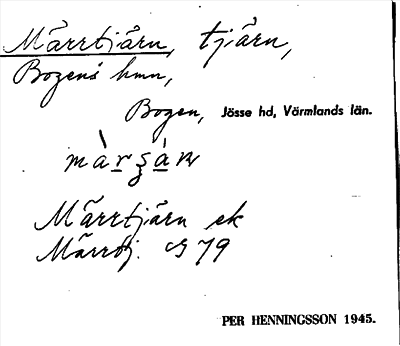 Märrtjärn, tjärn,
Bogens hmn,
Bogen, Jösse hd, Värmlands län.
Märrtjärn ek
Märrtj. 79
PER HENNINGSSON 1945.